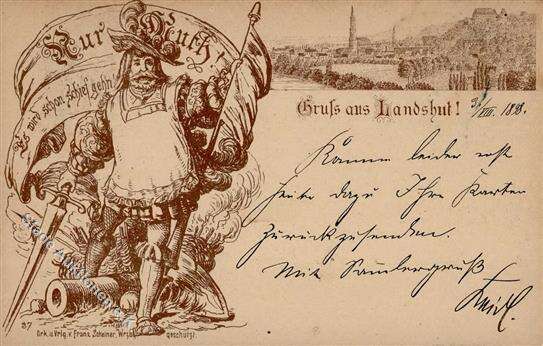 Nur Muth!
Es wird schon schief gehn!
Gruss aus Landshut!
VIII. 188.
Kann leider erst
heute dazu Ihre Karten
zurückzusenden.
Mit Sandlergruß
37
Drk. u. Vrlg. v. Franz Scheiner, Wrzbg.
geschützt.